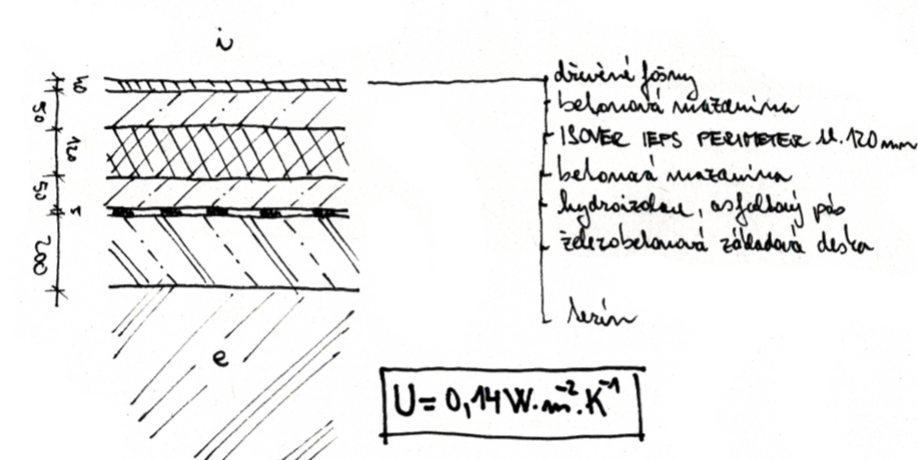 i
dřevěné fošny
50
betonová mazanina
120
ISOVER EPS PERIMETER tl. 120 mm
50
betonová mazanina
5
hydroizolace, asfaltový pás
200
železobetonová základová deska
terén
e
U = 0,14 W·m⁻²·K⁻¹